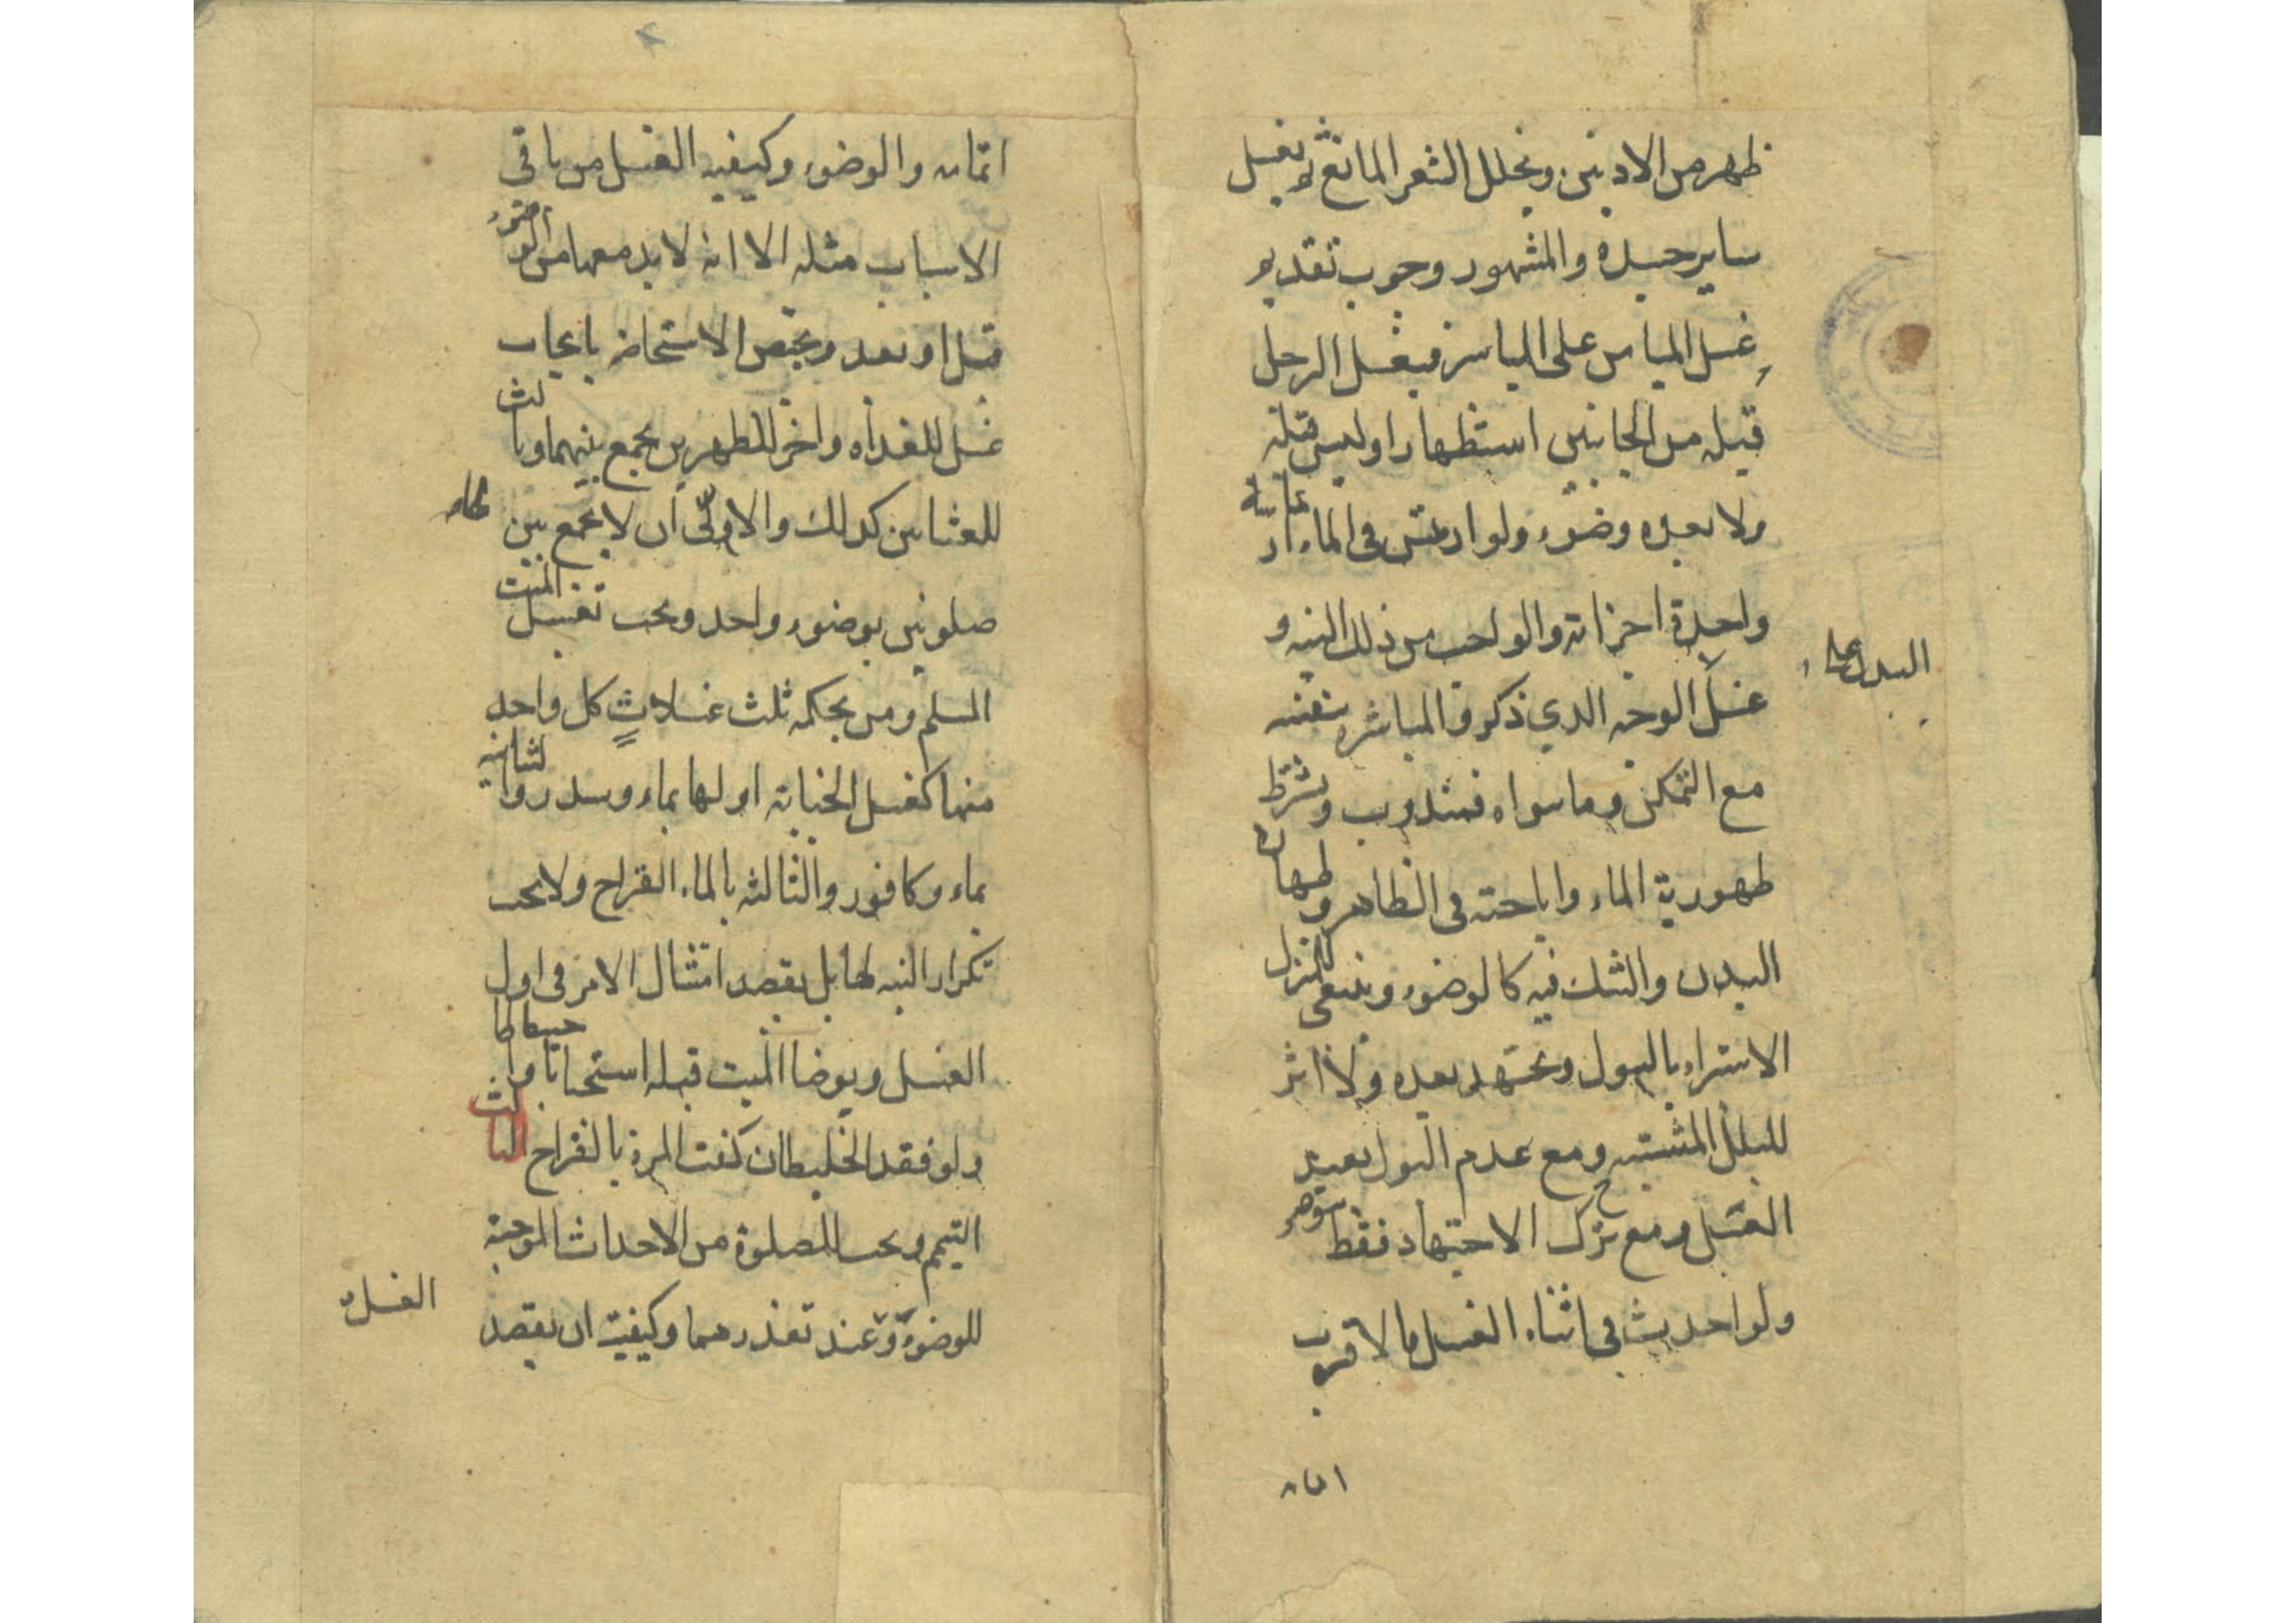 ظهر من الاذنين ويخلل الشعر المانع ثم يغسل
ساير جسده والمشهور وجوب تقديم
غسل الميامن على المياسر فيغسل الرجل
قبله من الجانبين استظهارا وليس قبله
ولا بعده وضوء ولو ارتمس في الماء ارتماسة
واحدة اجزأته والواجب من ذلك النيه و
غسل الوجه الذي ذكر والمباشره بنفسه
مع التمكن وما سواه فمندوب ويشترط
طهورية الماء واباحته في الظاهر وطهارة
البدن والشك فيه كالوضوء وينبغي للمنزل
الاستبراء بالبول ويجتهد بعده ولا اثر
للبلل المشتبه ومع عدم البول يعيد
الغسل ومع ترك الاجتهاد فقط يتوضر
ولو احدث في اثناء الغسل فالاقرب
البدن على
اتمامه
اتمامه والوضوء وكيفيه الغسل من باقي
الاسباب مثله الا انه لا بد معها من الوضوء
قبل او بعد ويختص الاستحاضه بايجاب
غسل للغداه واخر للظهرين يجمع بينهما وثالث
للعشائين كذلك والاولى ان لا يجمع بين
صلوتين بوضوء واحد ويجب تغسيل الميت
المسلم ومن بحكمه ثلث غسلات كل واحد
منها كغسل الجنابه اولها بماء وسدر والثانيه
بماء وكافور والثالثه بالماء القراح ولا يجب
تكرار النيه لها بل يقصد امتثال الامر في اول
الغسل ويوضا الميت قبله استحبابا واحتياطا
ولو فقد الخليطان كفت المرة بالقراح الثالث
التيمم ويجب للصلوة من الاحداث الموجبة
للوضوء وعند تعذرهما وكيفيته ان يقصد
الغسل